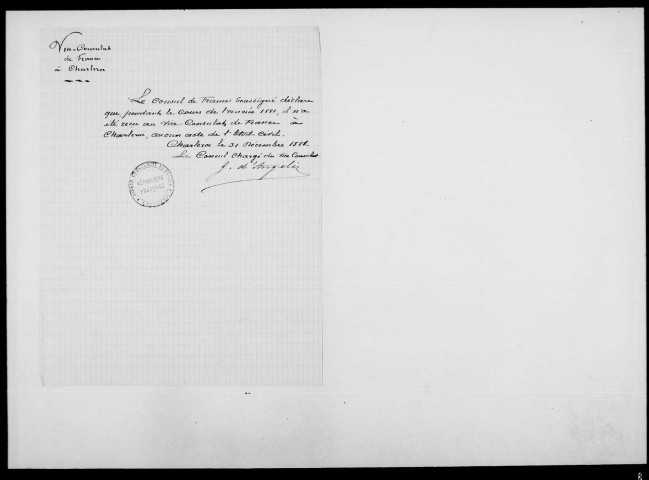 Vice-Consulat
de France
à Charleroi
Le Consul de France soussigné déclare
que pendant le cours de l'année 1881, il n'a
été reçu au Vice-Consulat de France à
Charleroi, aucun acte de l'Etat civil.
Charleroi le 31 Décembre 1881
Le Consul Chargé du Vice Consulat
J. d'Angelis